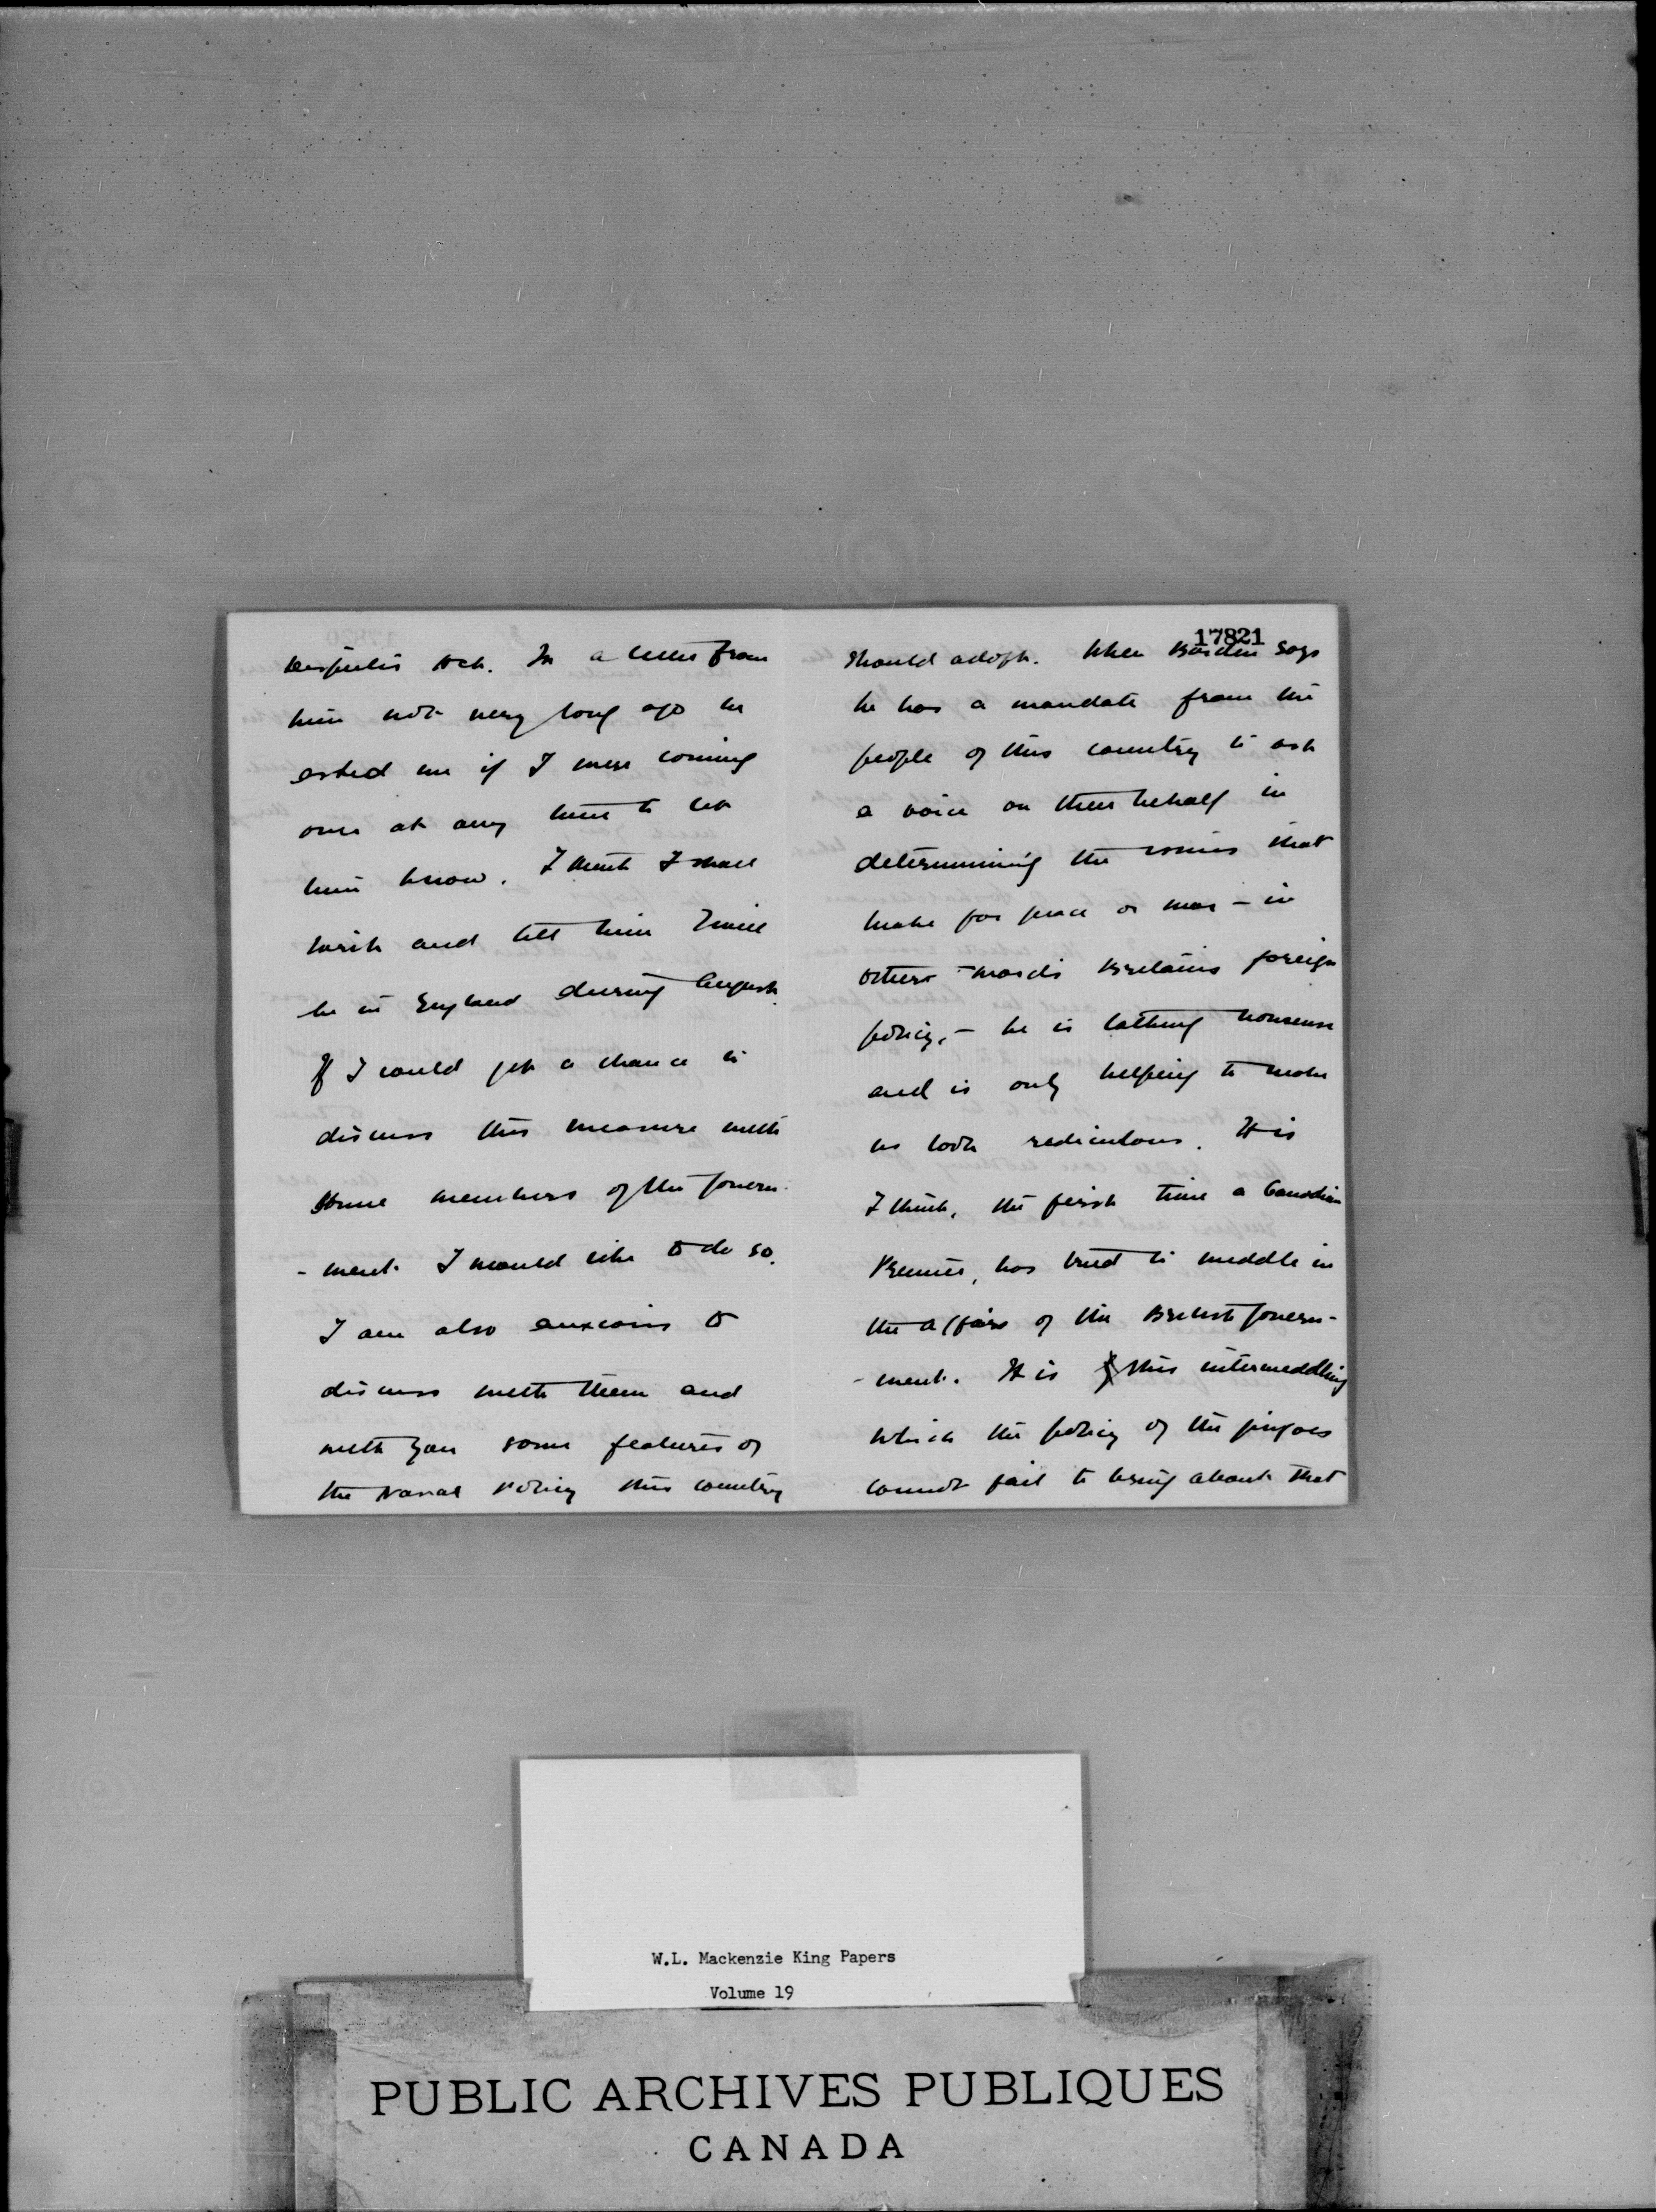 Disputes Act. In a letter from
him not very long ago he
asked me if I were coming
over at any time to let
him know. I think I shall
write and tell him I will
be in England during August.
If I could get a chance to
discuss this measure with
some members of the Govern-
-ment I would like to do so.
I am also anxious to
discuss with them and
with you some features of
the Naval Policy this country
17821
should adopt. When Borden says
he has a mandate from the
people of this country to ask
a voice on their behalf in
determining the issues that
make for peace or war - in
other words Britains foreign
policy, - he is talking nonsense
and is only helping to make
us look rediculous. It is
I think, the first time a Canadian
Premier, has tried to meddle in
the affairs of the British Govern-
-ment. It is this intermeddling
which the policy of the jingoes
cannot fail to bring about that
W.L. Mackenzie King Papers
Volume 19
PUBLIC ARCHIVES PUBLIQUES
CANADA